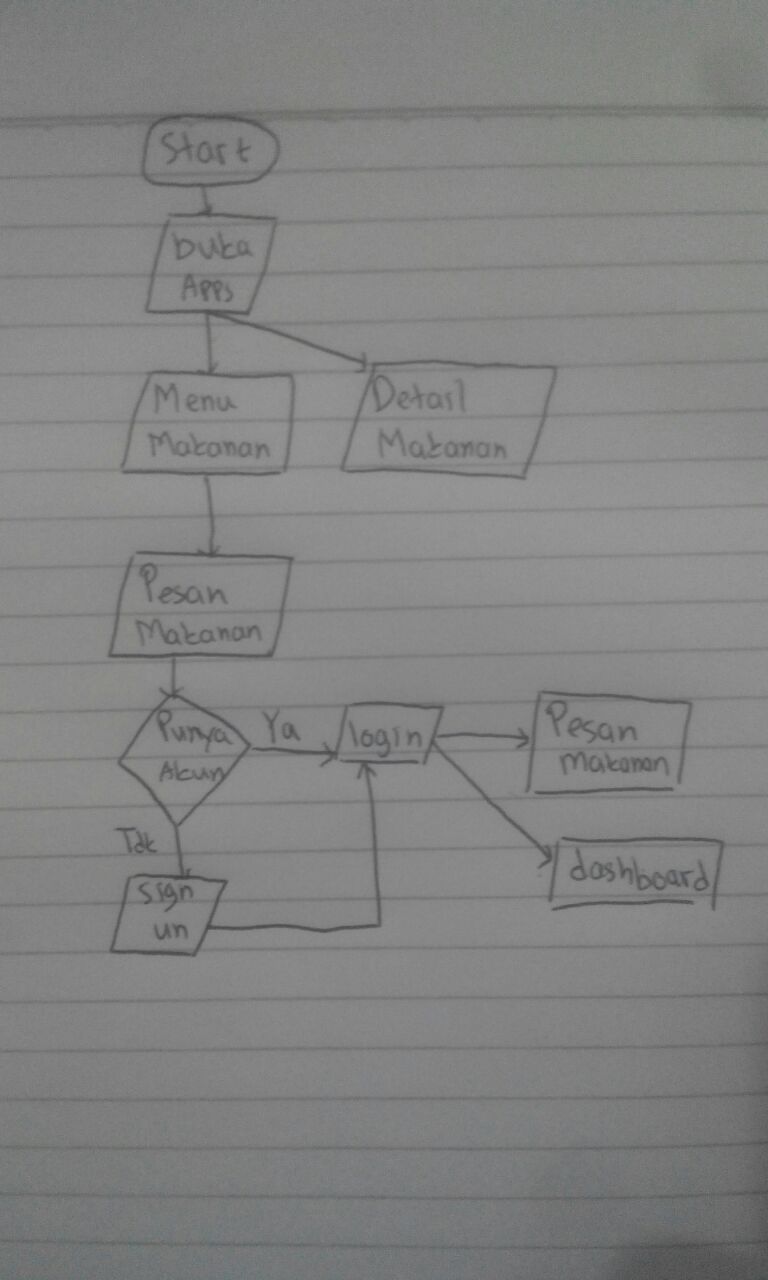 Start
buka
Apps
Menu
Makanan
Detail
Makanan
Pesan
Makanan
Punya
Akun
Ya
login
Pesan
Makanan
Tdk
dashboard
sign
un